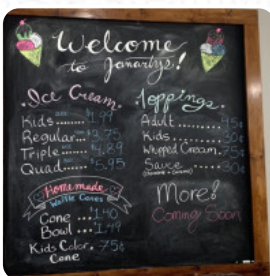 Welcome
to Janarlys!
Ice Cream
Kids ..... $1.99
Regular ... $3.75
Triple ..... $4.89
Quad ...... $5.95
Homemade
Waffle Cones
Cone ... 1.40
Bowl ... 1.49
Kids Color. 75¢
Cone
Toppings
Adult ......... 45¢
Kids ......... 30¢
Whipped Cream. 75¢
Sauce ..... 30¢
More!
Coming Soon